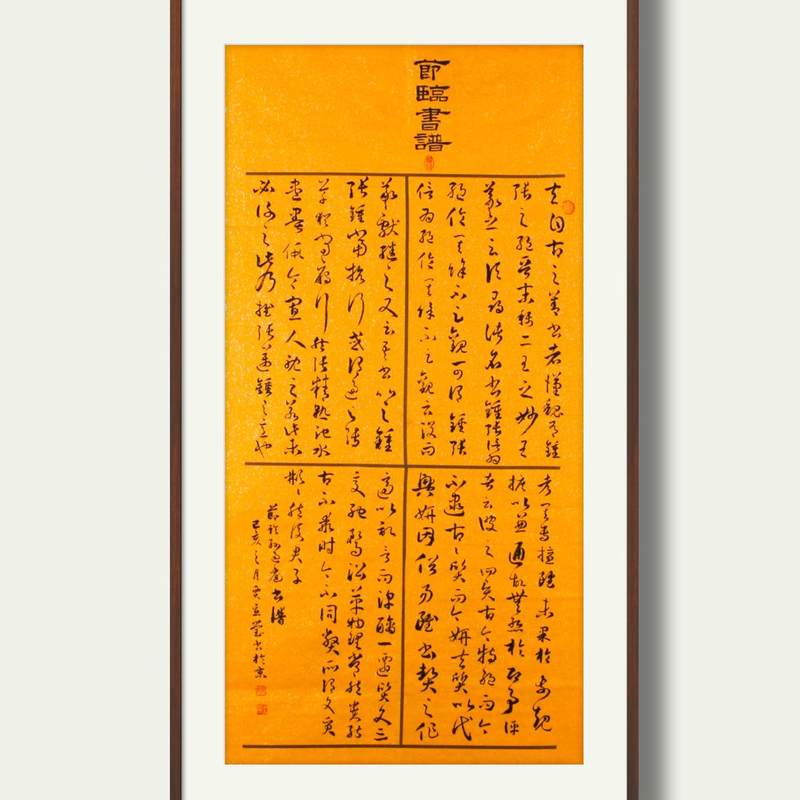 節臨書譜
夫自古之善書者漢魏有鍾
張之絕晉末稱二王之妙王
羲之云頃尋諸名書鍾張信為
絕倫其餘不足觀可謂鍾張
信為絕倫其餘不足觀云沒而
羲獻繼之又云吾書比之鍾
張鍾當抗行或謂過之張
草猶當雁行然張精熟池水
盡墨假令寡人耽之若此未
必謝之此乃推張邁鍾之意也
考其專擅雖未果於前規
摭以兼通故無慚於即事評
者云彼之四賢古今特絕而今
不逮古古質而今妍夫質以代
興妍因俗易雖書契之作
適以記言而淳醨一遷質文三
變馳騖沿革物理常然貴能
古不乖時今不同弊所謂文質
彬彬然後君子
節臨孫過庭書譜
己亥之月書於京